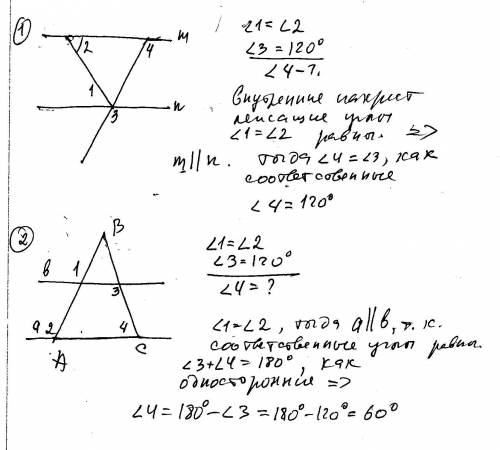 ① m ∠1=∠2
2 4 ∠3=120°
1 ∠4-?
3 n Внутренние накрест
лежащие углы
∠1=∠2 равны. =>
m||n. тогда ∠4=∠3, как
соответсвенные
∠4=120°
② B
∠1=∠2
b 1 3 ∠3=120°
∠4=?
a 2 4
A C
∠1=∠2, тогда a||b, т.к.
соответственные углы равны.
∠3+∠4=180°, как
односторонние =>
∠4=180°-∠3=180°-120°=60°